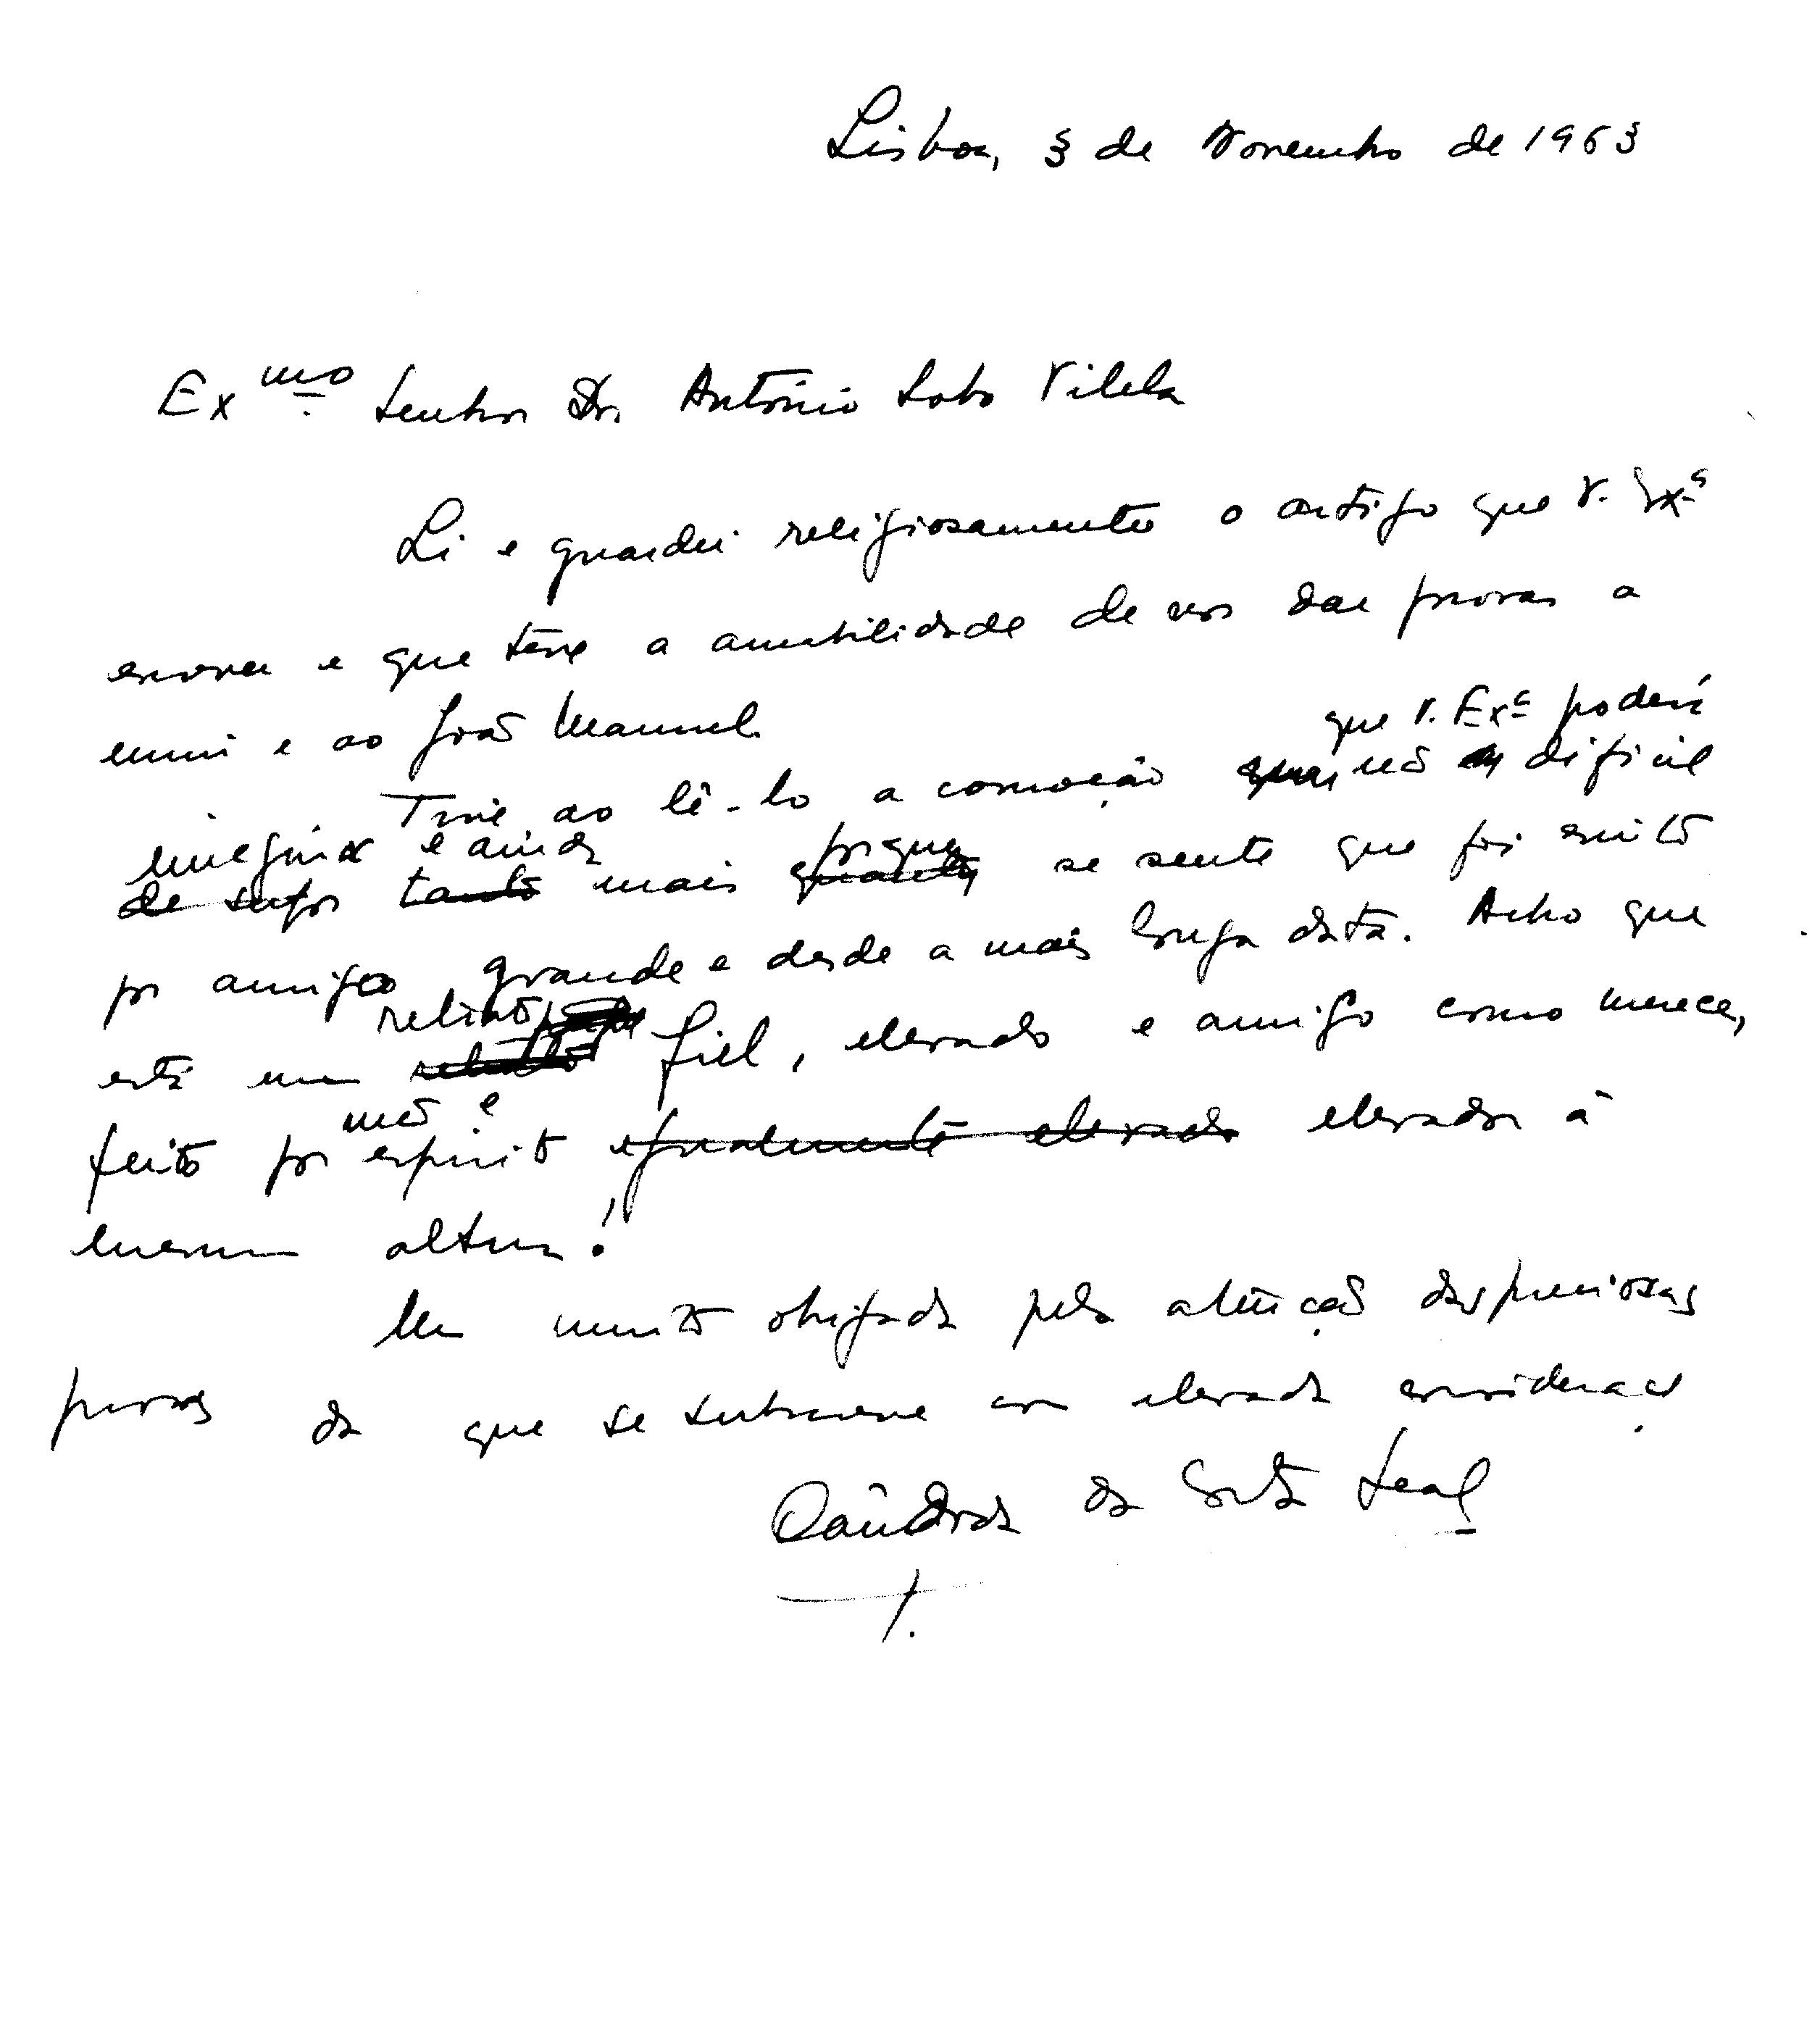 Lisboa, 3 de Novembro de 1963
Exmo. Senhor Dr. António Lobo Vilela
Li e guardei religiosamente o artigo que V. Exª
escreveu e que teve a amabilidade de nos dar provas a
mim e ao João Manuel.
que V. Exª poderá
Tive ao lê-lo a comoção que não é difícil
imaginar e ainda porque
de supor tanto mais quanto se sente que foi escrito
por amigo grande e desde a mais longa data. Acho que
retrato
está um retrato fiel, elevado e amigo como merece,
mão e
feito por espírito igualmente elevado elevados à
mesma altura!
Um muito obrigada pela atenção das preciosas
provas da que se subscreve com elevada consideração
Cândida da Costa Leal